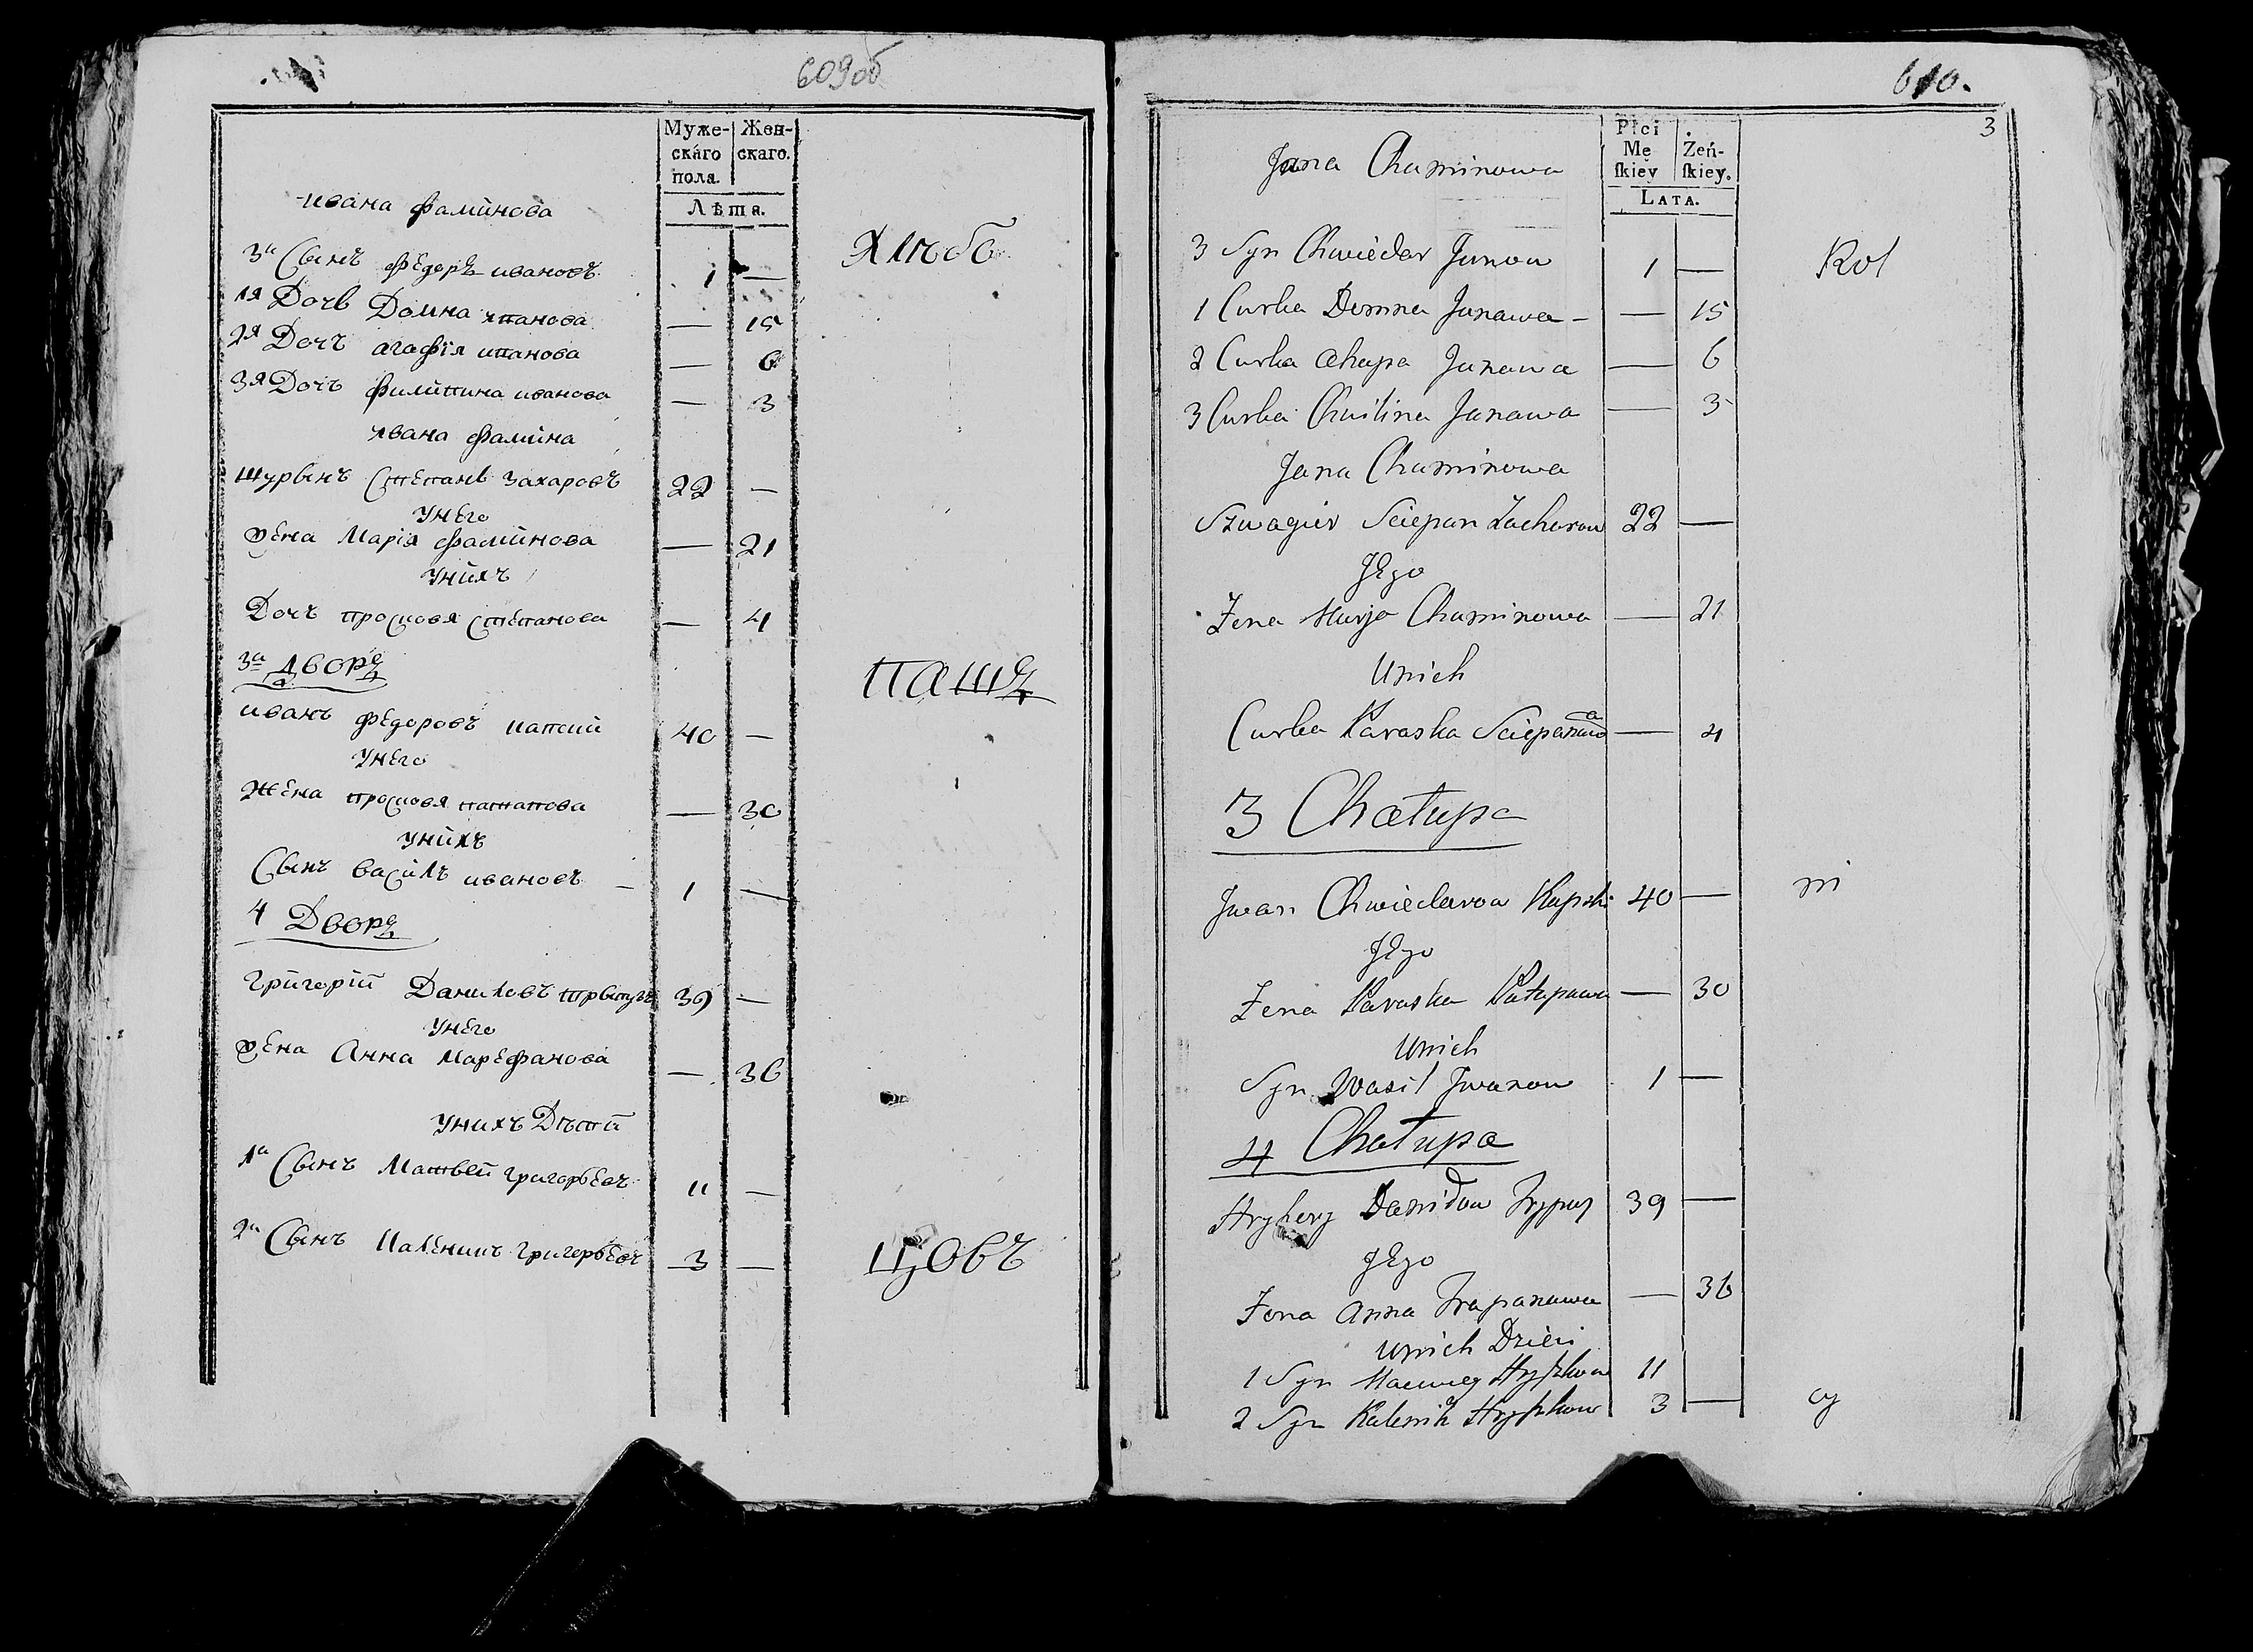 609об
Муже-
скаго
пола.
Жен-
скаго.
Лѣта.
ивана фаминова
3й Сынъ федеръ ивановъ 1 —
1я Дочь Домна иванова — 15
2я Дочъ агафія иванова — 6
3я Дочъ филипина иванова — 3
ивана фамина
шурынъ Степанъ Захаровъ 22 —
унего
жена Марія фаминова — 21
унихъ
Дочъ просковя степанова — 4
3й дворъ
иванъ федоровъ капский 40 —
унего
жена просковя патапова — 30
унихъ
Сынъ василъ ивановъ 1 —
4 Дворъ
григорій Даниловъ 39 —
унего
жена Анна — 36
унихъ Дѣти
1й Сынъ Матвей григорьевъ 11 —
2й Сынъ Каленикъ григорьевъ 3 —
хлѣбо
паше
цовъ
610.
3
Płci
Mę
ſkiey
Żeń-
ſkiey.
LATA.
Jana Chaminowa
3 Syn Chwiedar Janow 1 —
1 Curka Domna Janawa — 15
2 Curka Ahapa Janawa — 6
3 Curka Chwilina Janawa — 3
Jana Chaminowa
Szwagier Sciepan Zacharow 22 —
Jego
Żena Marja Chaminowa — 21
Unich
Curka Paraska Sciepanawa — 4
3 Chałupa
Jwan Chwiedarow Kapski 40 —
Jego
Żena Paraska Patapawa — 30
Unich
Syn Wasil Jwanow 1 —
4 Chałupa
Hryhory Daniłow 39 —
Jego
Żona Anna — 36
Unich Dzieci
1 Syn Maciwey Hryszkow 11
2 Syn Kalenik Hryszkow 3 —
Rol
ni
cy